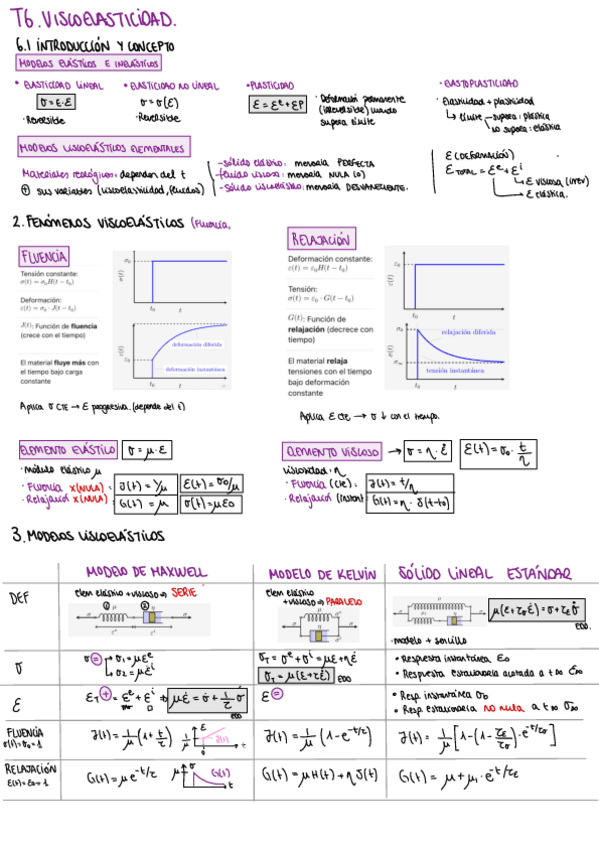 T6. VISCOELASTICIDAD.
6.1 INTRODUCCIÓN Y CONCEPTO
MODELOS ELÁSTICOS E INELÁSTICOS
• ELASTICIDAD LINEAL
σ = E·ε
· Reversible
• ELASTICIDAD NO LINEAL
σ = σ(ε)
· Reversible
• PLASTICIDAD
ε = εᵉ + εᵖ
· Deformación permanente
(irreversible) cuando
supera límite
• ELASTOPLASTICIDAD
· Elasticidad + plasticidad
↳ límite supera: plástica
no supera: elástica
MODELOS VISCOELÁSTICOS ELEMENTALES
Materiales reológicos: dependen del t
⊕ sus variables (viscoelasticidad, fluidos)
- sólido elástico: memoria PERFECTA
- fluido viscoso: memoria NULA (0)
- sólido viscoelástico: memoria DESVANECIENTE.
ε (DEFORMACIÓN)
ε TOTAL = εᵉ + εⁱ
↳ ε viscosa (irrev)
↳ ε elástica.
2. FENÓMENOS VISCOELÁSTICOS (Fluencia,
FLUENCIA
Tensión constante:
σ(t) = σ₀H(t − t₀)
Deformación:
ε(t) = σ₀ · J(t − t₀)
J(t): Función de fluencia
(crece con el tiempo)
El material fluye más con
el tiempo bajo carga
constante
σ₀
σ(t)
t₀
t
ε(t)
ε₀
deformación diferida
deformación instantánea
t₀
t
Aplica σ CTE → ε progresiva. (depende del t)
RELAJACIÓN
Deformación constante:
ε(t) = ε₀H(t − t₀)
Tensión:
σ(t) = ε₀ · G(t − t₀)
G(t): Función de
relajación (decrece con
tiempo)
El material relaja
tensiones con el tiempo
bajo deformación
constante
ε₀
ε(t)
t₀
t
σ₀
σ(t)
σ∞
relajación diferida
tensión instantánea
t₀
t
Aplica ε CTE → σ ↓ con el tiempo.
ELEMENTO ELÁSTICO σ = μ·ε
· módulo elástico μ
· Fluencia X(NULA): J(t) = 1/μ ε(t) = σ₀/μ
· Relajación X(NULA) G(t) = μ σ(t) = με₀
ELEMENTO VISCOSO → σ = η·ε̇ ε(t) = σ₀·t/η
viscosidad · η
· Fluencia (cte): J(t) = t/η
· Relajación (instant G(t) = η·δ(t-t₀)
3. MODELOS VISCOELÁSTICOS
MODELO DE MAXWELL MODELO DE KELVIN SÓLIDO LINEAL ESTÁNDAR
DEF
elem elástico + viscoso → SERIE
elem elástico
+ viscoso → PARALELO
μ(ε + τσ ε̇) = σ + τε σ̇
EDO.
· modelo + sencillo
σ
σ = σ₁ = μεᵉ
σ₂ = με̇
σT = σᵉ + σⁱ = με + ηε̇
σT = μ(ε + τε̇) EDO
• Respuesta instantánea ε₀
• Respuesta estacionaria acotada a t→∞ ε∞
ε
εT = εᵉ + εⁱ ⇒ με̇ = σ̇ + 1/τ σ
EDO
ε =
• Resp. instantánea σ₀
• Resp estacionaria no nula a t→∞ σ∞
FLUENCIA
σ(t) = σ₀ = 1
J(t) = 1/μ (1 + t/τ)
J(t) = 1/μ (1 - e^-t/τ)
J(t) = 1/μ [1 - (1 - τε/τσ)·e^-t/τσ]
RELAJACIÓN
ε(t) = ε₀ = 1
G(t) = μe^-t/τ
G(t) = μH(t) + ηδ(t)
G(t) = μ + μ₁·e^-t/τε